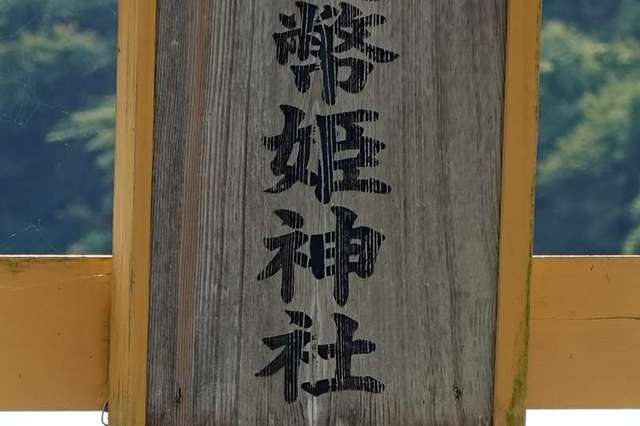 幣姫神社